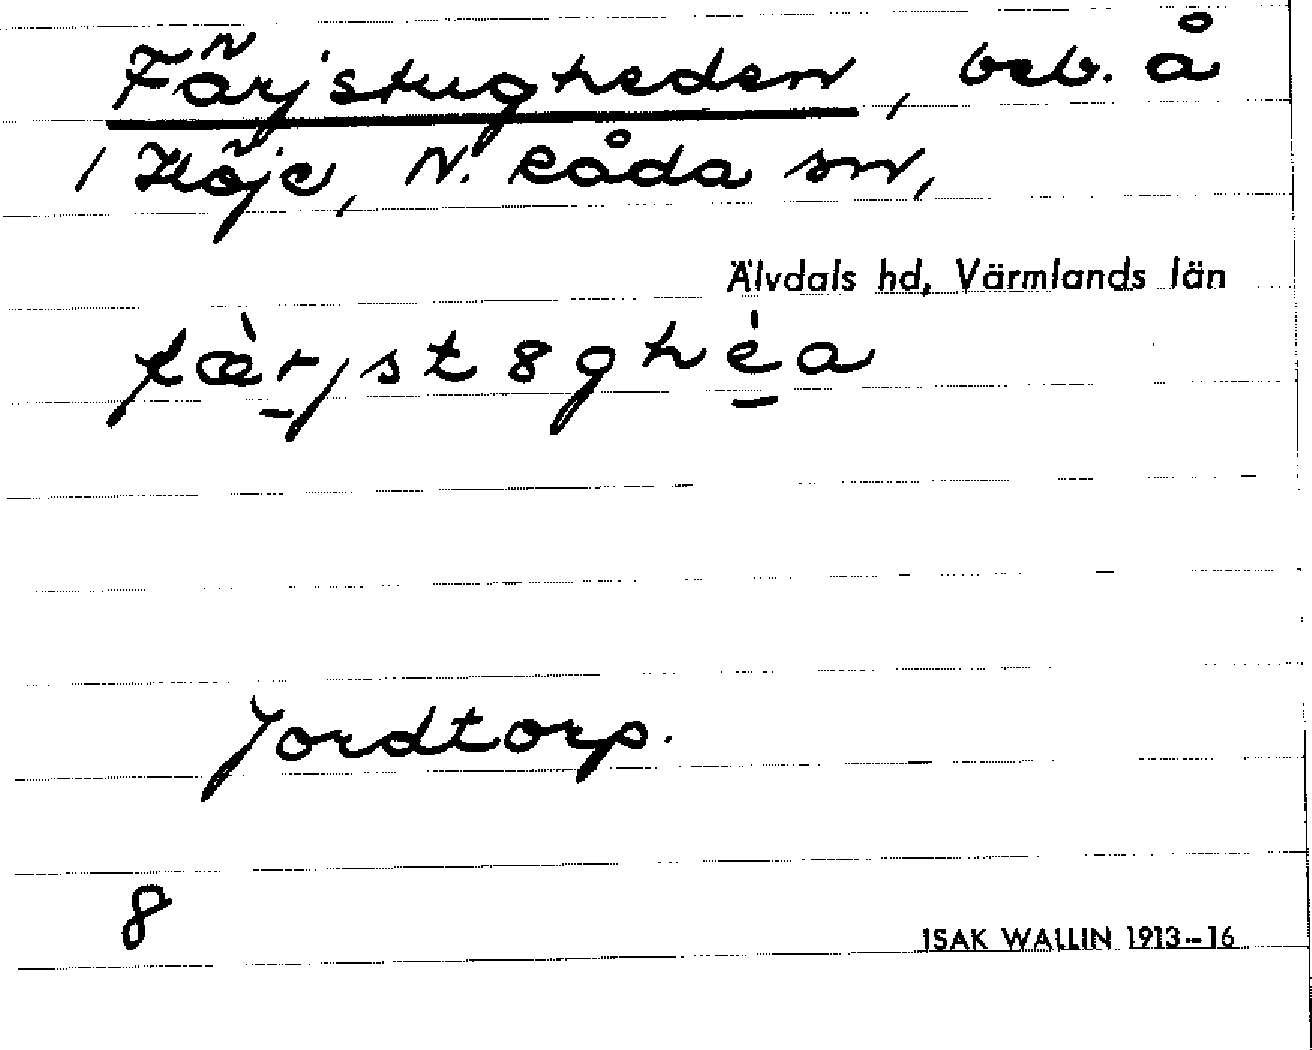 Färjstugheden, beb. å
1 Höje, N. Råda sn,
Älvdals hd, Värmlands län
fæ̀rjst8ghéa
Jordtorp.
8
ISAK WALLIN 1913-16